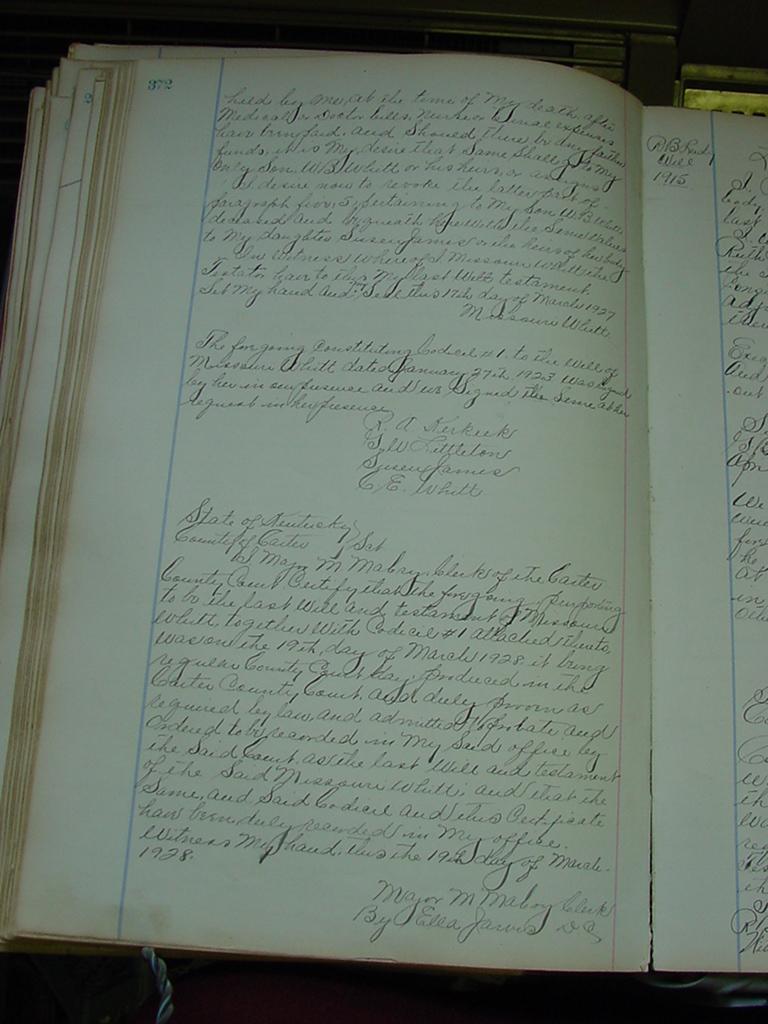 372
held by me, at the time of My death after
Medical or Doctor bills, Nurse or funeral expenses
have been paid. and Should there be any further
funds, it is My desire that Same Shall go to My
Only Son, W.B. Whitt or his heirs, or assigns
I desire now to revoke the latter part of
paragraph five, 5, pertaining to My Son W.B. Whitt
deceased and bequeath herewith the Same
to My daughter Susen James or the heirs of her body
In Witness Whereof I Missouri Whitt the
Testator have to this My last Will & testament
Set My hand and Seal this 17th day of March 1927
Missouri Whitt
The foregoing Constituting Codecil #1. to the Will of
Missouri Whitt dated January 27th. 1923 was signed
by her in our presence and we Signed the Same at her
request in her presence
R. A
Littleton
Susen James
C. E. Whitt
State of Kentucky
County of Carter Sct
I Major M Mabry Clerk of the Carter
County Court Certify that the foregoing purporting
to be the last Will and testament of Missouri
Whitt together With Codecil #1 attached thereto
was on the 19th, day of March 1928 it being
regular County Court day produced in the
Carter County Court. and duly proven as
required by law, and admitted to probate and
Ordered to be recorded in My Said office by
the Said Court. as the last Will and testament
of the Said Missouri Whitt; and that the
Same, and Said Codecil and this Certificate
have been duly recorded in My office.
Witness My hand, this the 19th day of March.
1928.
Major M Mabry Clerk
By Ella Jarvis D C
Will
1915